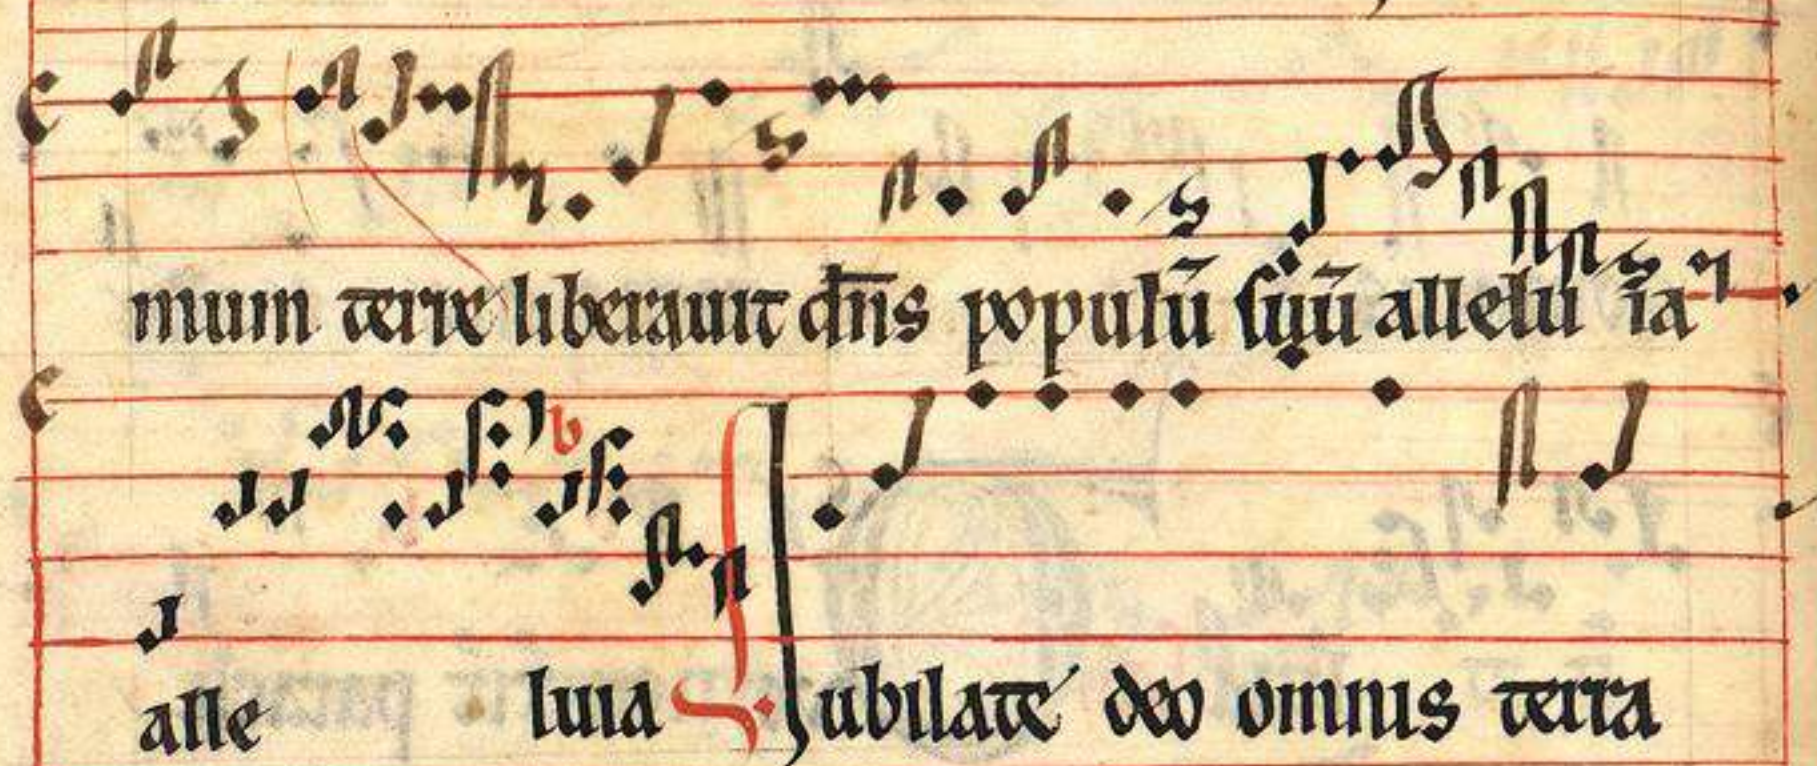 mum terre liberauit dn̄s populū suū allelu ia
alle luia Iubilate deo omnis terra